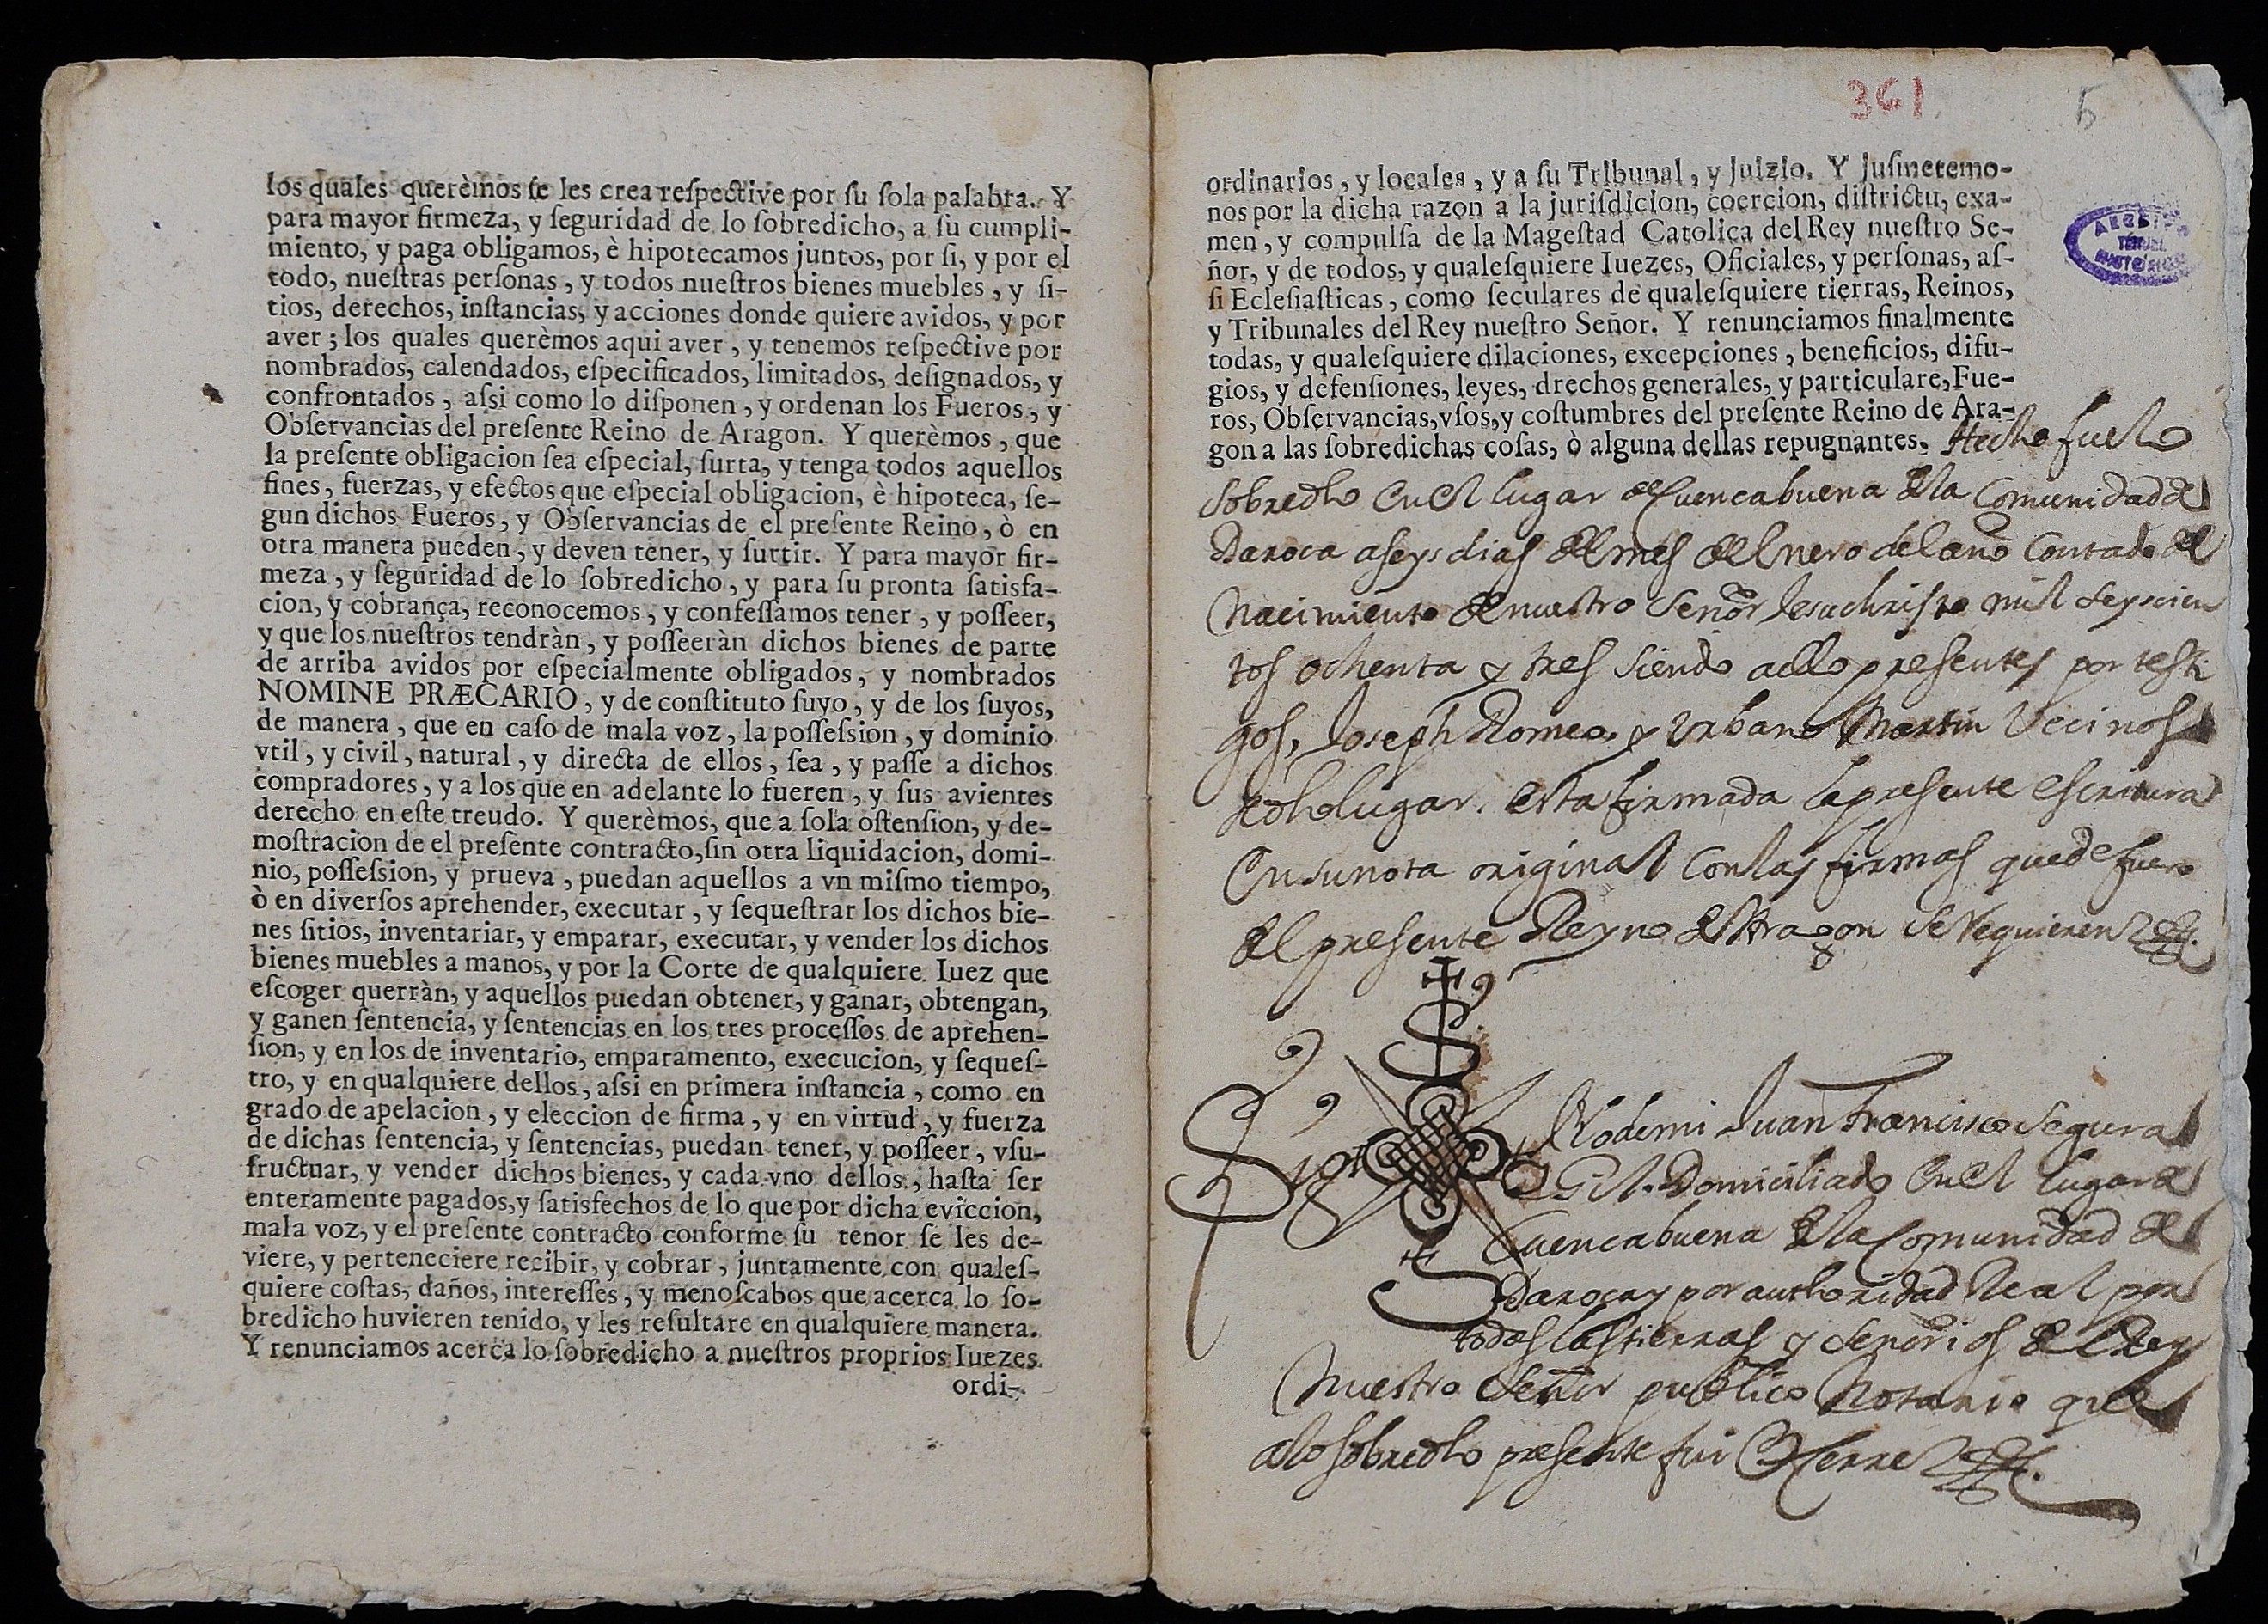 los quales querèmos se les crea respective por su sola palabra. Y
para mayor firmeza, y seguridad de lo sobredicho, a su cumpli-
miento, y paga obligamos, è hipotecamos juntos, por si, y por el
todo, nuestras personas, y todos nuestros bienes muebles, y si-
tios, derechos, instancias, y acciones donde quiere avidos, y por
aver; los quales querèmos aqui aver, y tenemos respective por
nombrados, calendados, especificados, limitados, designados, y
confrontados, assi como lo disponen, y ordenan los Fueros, y
Observancias del presente Reino de Aragon. Y querèmos, que
la presente obligacion sea especial, surta, y tenga todos aquellos
fines, fuerzas, y efectos que especial obligacion, è hipoteca, se-
gun dichos Fueros, y Observancias de el presente Reino, ò en
otra manera pueden, y deven tener, y surtir. Y para mayor fir-
meza, y seguridad de lo sobredicho, y para su pronta satisfa-
cion, y cobrança, reconocemos, y confessamos tener, y posseer,
y que los nuestros tendràn, y posseeràn dichos bienes de parte
de arriba avidos por especialmente obligados, y nombrados
NOMINE PRÆCARIO, y de constituto suyo, y de los suyos,
de manera, que en caso de mala voz, la possession, y dominio
vtil, y civil, natural, y directa de ellos, sea, y passe a dichos
compradores, y a los que en adelante lo fueren, y sus avientes
derecho en este treudo. Y querèmos, que a sola ostension, y de-
mostracion de el presente contracto, sin otra liquidacion, domi-
nio, possession, y prueva, puedan aquellos a vn mismo tiempo,
ò en diversos aprehender, executar, y sequestrar los dichos bie-
nes sitios, inventariar, y emparar, executar, y vender los dichos
bienes muebles a manos, y por la Corte de qualquiere Iuez que
escoger querràn, y aquellos puedan obtener, y ganar, obtengan,
y ganen sentencia, y sentencias en los tres processos de aprehen-
sion, y en los de inventario, emparamento, execucion, y seques-
tro, y en qualquiere dellos, assi en primera instancia, como en
grado de apelacion, y eleccion de firma, y en virtud, y fuerza
de dichas sentencia, y sentencias, puedan tener, y posseer, vsu-
fructuar, y vender dichos bienes, y cada vno dellos, hasta ser
enteramente pagados, y satisfechos de lo que por dicha eviccion,
mala voz, y el presente contracto conforme su tenor se les de-
viere, y perteneciere recibir, y cobrar, juntamente con quales-
quiere costas, daños, interesses, y menoscabos que acerca lo so-
bredicho huvieren tenido, y les resultàre en qualquiere manera.
Y renunciamos acerca lo sobredicho a nuestros proprios Iuezes
ordi-
361
5
ordinarios, y locales, y a su Tribunal, y juizio. Y jusmetemo-
nos por la dicha razon a la jurisdicion, coercion, districtu, exa-
men, y compulsa de la Magestad Catolica del Rey nuestro Se-
ñor, y de todos, y qualesquiere Iuezes, Oficiales, y personas, as-
si Eclesiasticas, como seculares de qualesquiere tierras, Reinos,
y Tribunales del Rey nuestro Señor. Y renunciamos finalmente
todas, y qualesquiere dilaciones, excepciones, beneficios, difu-
gios, y defensiones, leyes, drechos generales, y particulare, Fue-
ros, Observancias, vsos, y costumbres del presente Reino de Ara-
gon a las sobredichas cosas, ò alguna dellas repugnantes. Hecho fue lo
sobredho en el lugar de Cuencabuena de la Comunidad de
Daroca a seys dias del mes de Enero del año Contado del
Nacimiento de nuestro Señor Jesuchristo mil seyscien
tos ochenta y tres siendo a ello presentes por testi
gos, Joseph Romeo, y Urbano Martin Vecinos
de dho lugar. esta firmada la presente escritura
en su nota original con las firmas que de fuero
del presente Reyno de Aragon se requieren
Sig no
de mi Juan Francisco Segura
Gil Domiciliado en el lugar de
Cuencabuena de la Comunidad de
Daroca y por authoridad Real por
todas las tierras y señorios del Rey
Nuestro Señor publico Notario que
a lo sobredho presente fui Et cerre